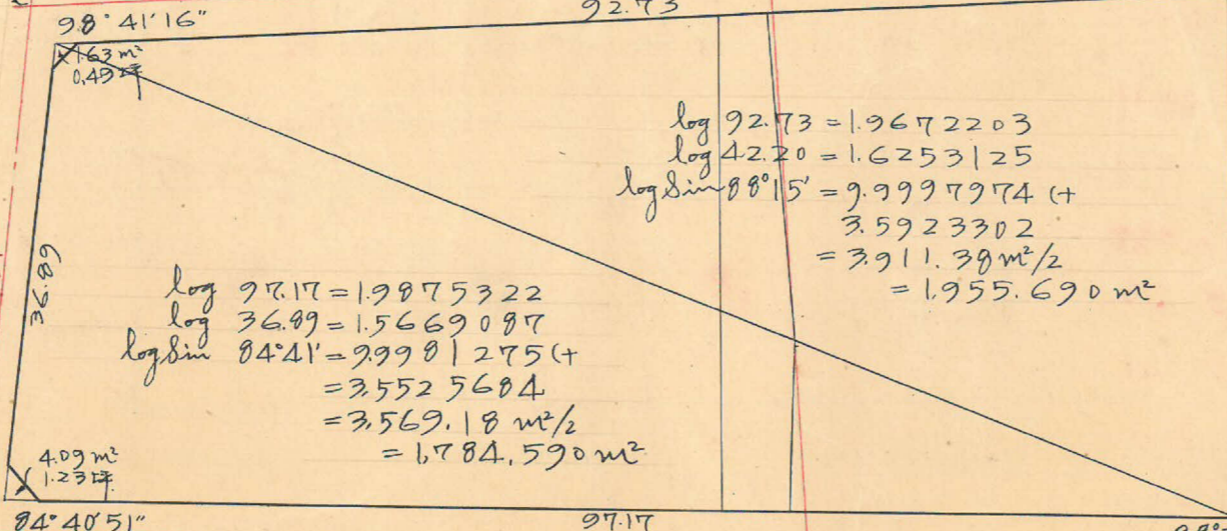 98°41'16"
92.73
1.63 m²
0.49坪
log 92.73 = 1.9672203
log 42.20 = 1.6253125
log Sin 88°15' = 9.9997974 (+
3.5923302
= 3.911.38 m²/2
= 1.955.690 m²
36.89
log 97.17 = 1.9875322
log 36.89 = 1.5669087
log Sin 84°41' = 9.9981275 (+
= 3.5525684
= 3,569.18 m²/2
= 1,784,590 m²
4.09 m²
1.23坪
84°40'51"
97.17